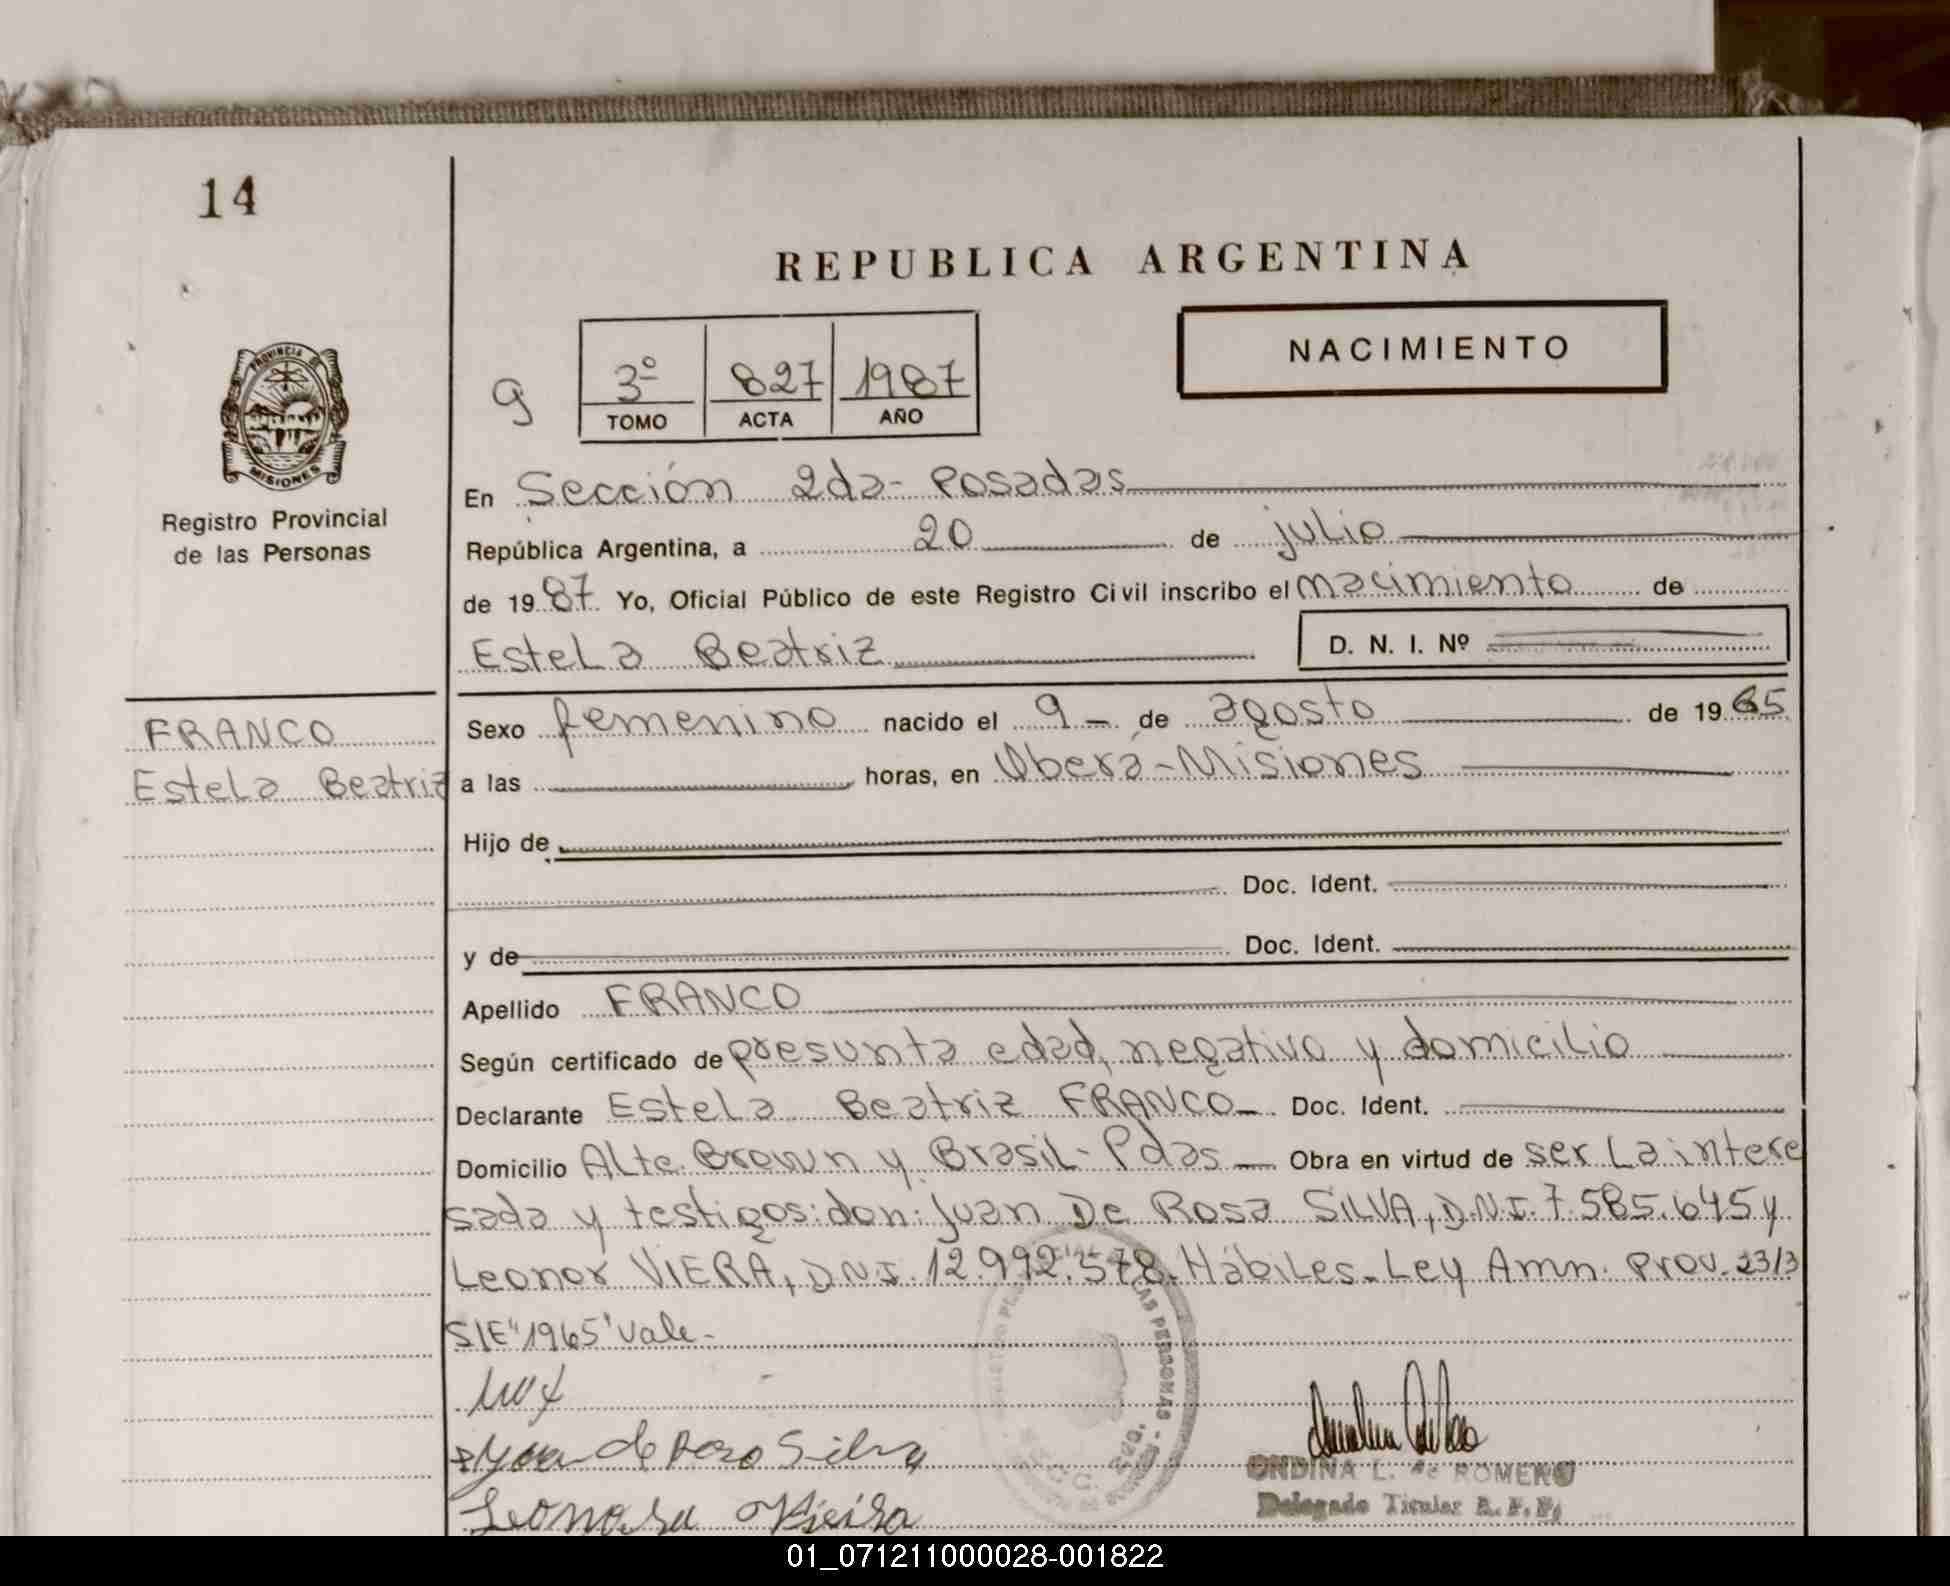 14
REPUBLICA ARGENTINA
NACIMIENTO
9
3º 827 1987
TOMO ACTA AÑO
PROVINCIA DE
MISIONES
Registro Provincial
de las Personas
En Sección 2da- Posadas
República Argentina, a 20 de julio
de 1987 Yo, Oficial Público de este Registro Civil inscribo el nacimiento de
Estela Beatriz D. N. I. Nº
FRANCO
Estela Beatriz
Sexo femenino nacido el 9- de agosto de 1965
a las horas, en Oberá-Misiones
Hijo de
Doc. Ident.
y de Doc. Ident.
Apellido FRANCO
Según certificado de presunta edad, negativo y domicilio
Declarante Estela Beatriz FRANCO- Doc. Ident.
Domicilio Alte. Brown y Brasil- Pdas- Obra en virtud de ser La intere
sada y testigos: don: Juan De Rosa SILVA, D.N.I. 7.585.645 y
Leonor VIERA, D.N.I. 12.992.578. Hábiles- Ley Amn. Prov. 23/3
S/E "1965" Vale-
Juan de Roso Silva
Leonora Vieira
ONDINA L. de ROMERO
Delegado Titular R.P.P.
01_071211000028-001822